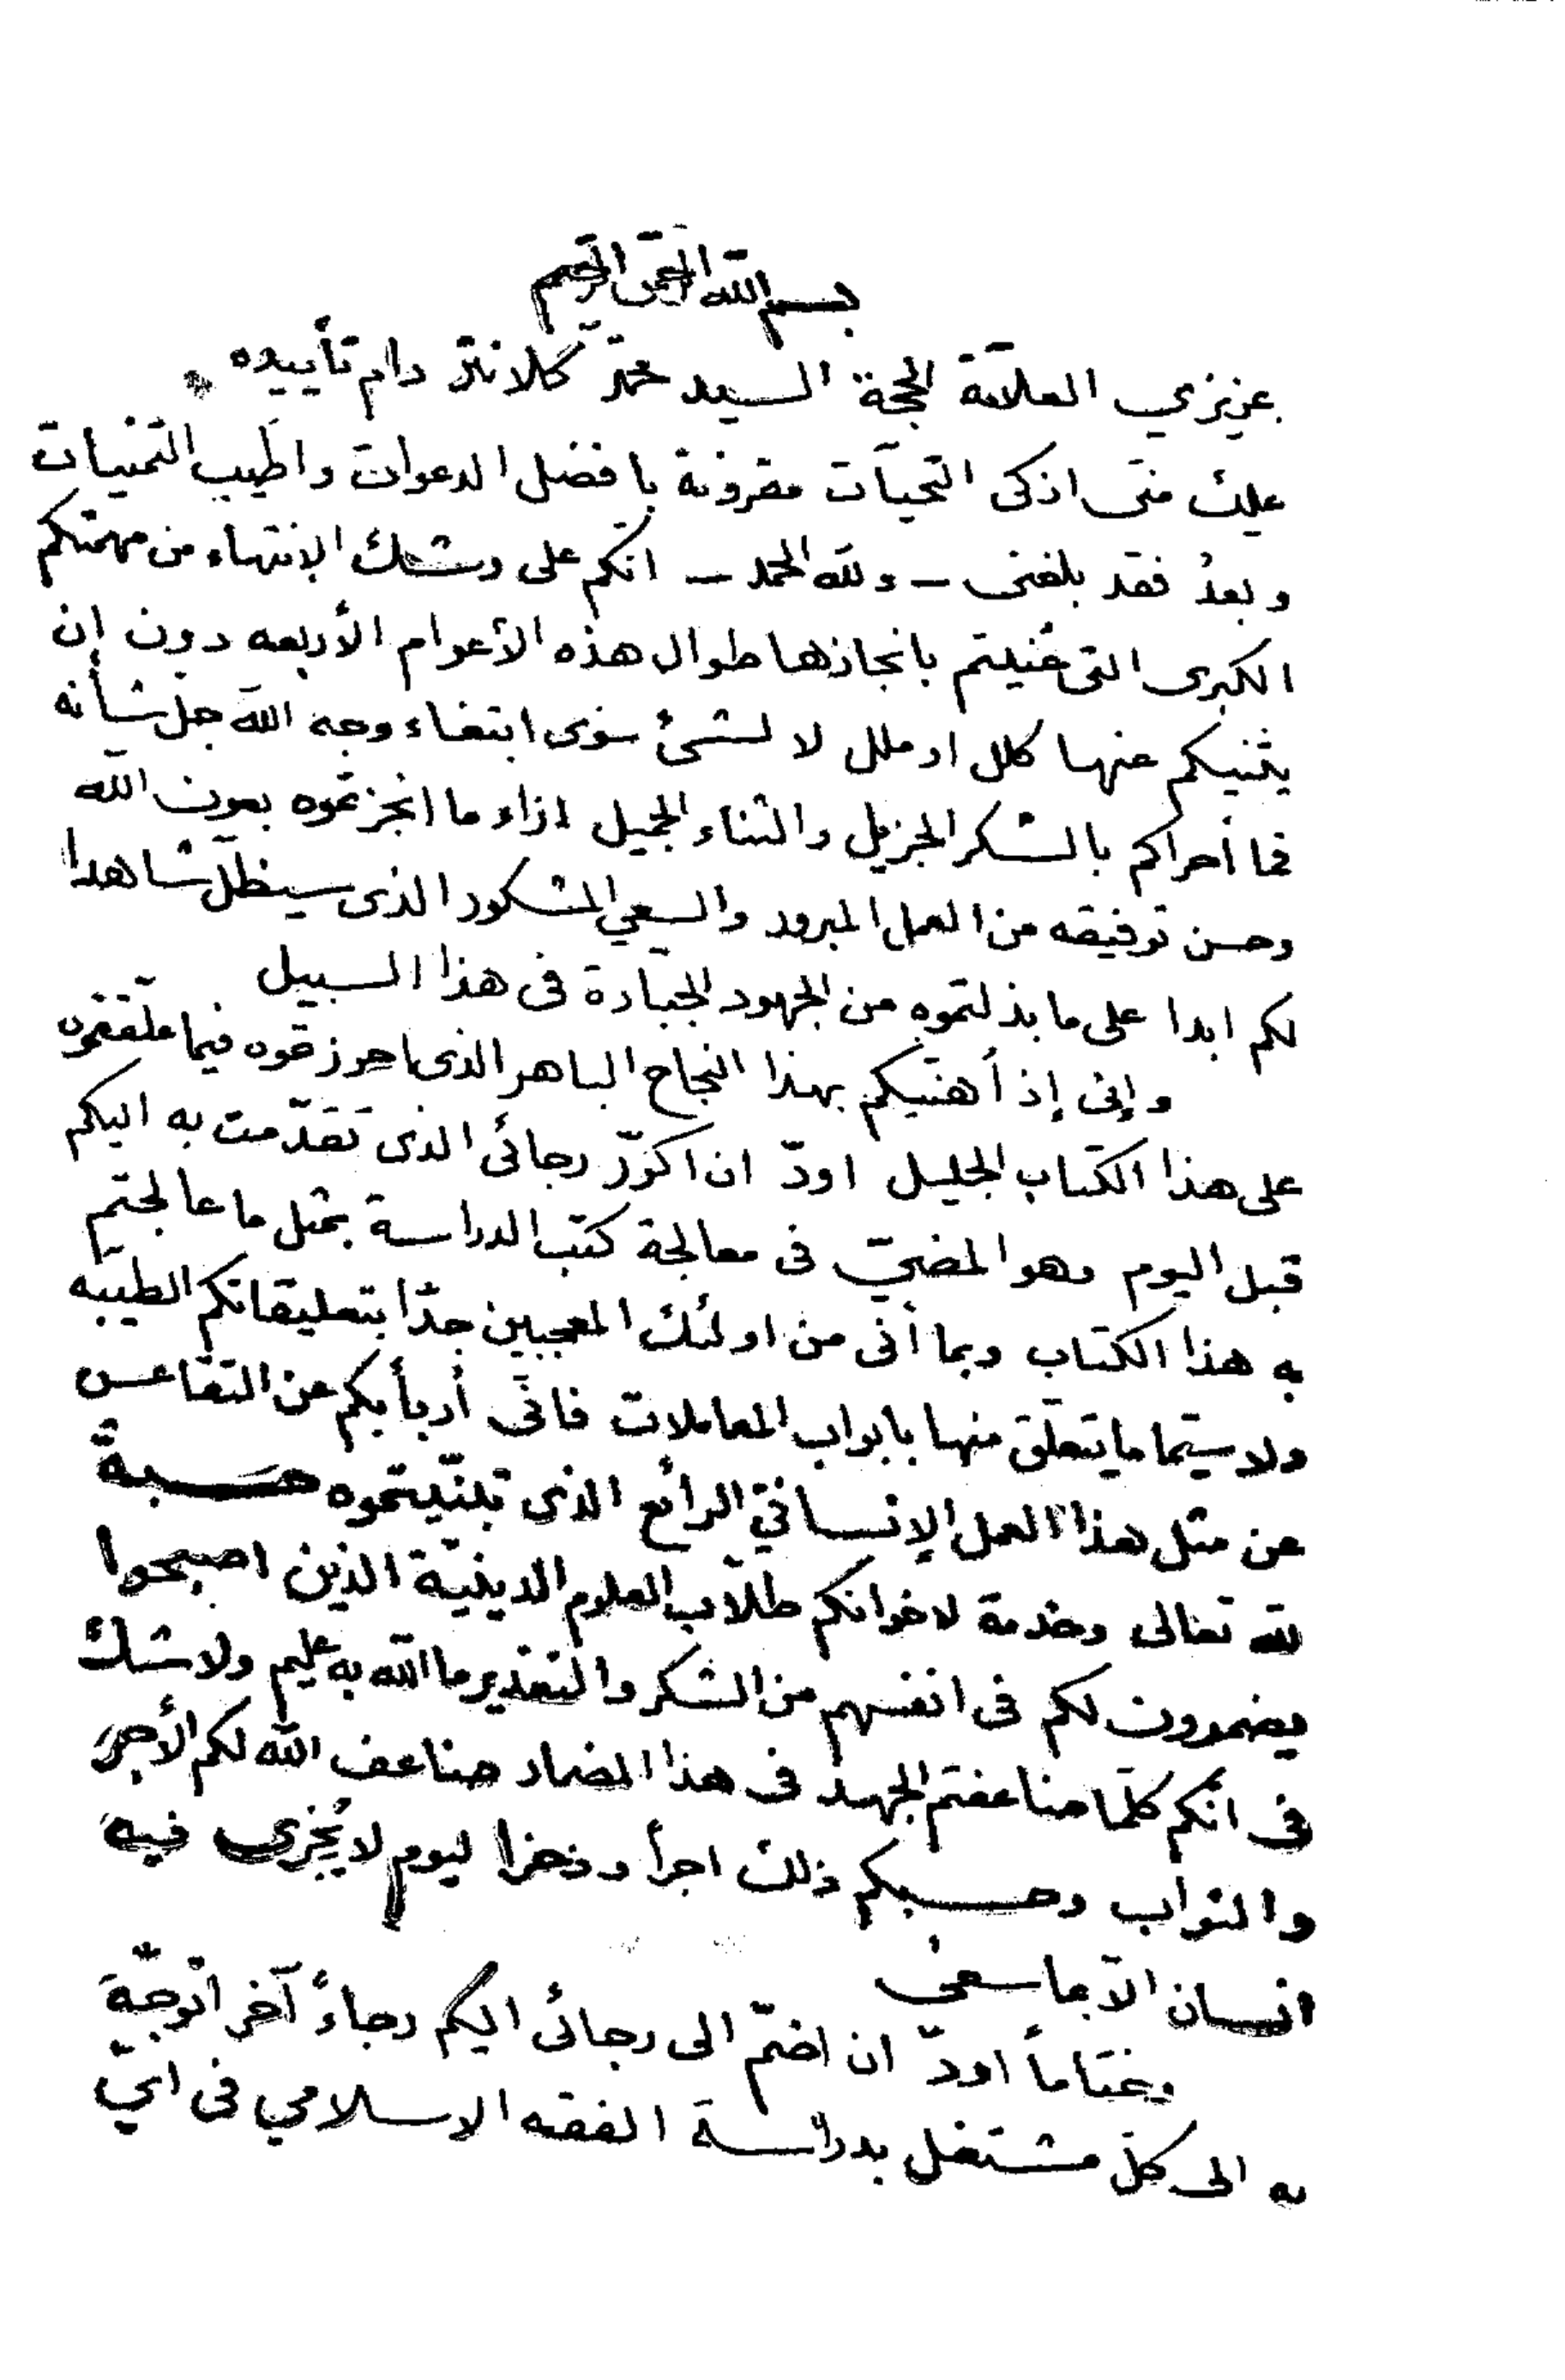 بسم الله الرحمن الرحيم
عزيزي العلامة الحجة السيد محمد كلانتر دام تأييده
عليك منى ازكى التحيات مقرونة بافضل الدعوات واطيب التمنيات
وبعد فقد بلغنى – ولله الحمد – انكم على وشك الإنتهاء من مهمتكم
الكبرى التى عُنيتم بانجازها طوال هذه الأعوام الأربعه دون ان
يثنيكم عنها كلل او ملل لا لشئ سوى ابتغاء وجه الله جل شأنه
فما أحراكم بالشكر الجزيل والثناء الجميل ازاء ما انجزتموه بعون الله
وحسن توفيقه من العمل المبرور والسعي المشكور الذى سيظلّ شاهدا
لكم ابدا على ما بذلتموه من الجهود الجبّارة فى هذا السبيل
وإنى إذ أهنّيكم بهذا النجاح الباهر الذى احرزتموه فيما علّقتموه
على هذا الكتاب الجليل اودّ ان اكرّر رجائى الذى تقدّمت به اليكم
قبل اليوم وهو المضىّ فى معالجة كتب الدراسة بمثل ما عالجتم
به هذا الكتاب وبما أنى من اولئك المعجبين جدّا بتعليقاتكم الطيّبه
ولا سيّما ما يتعلّق منها بابواب المعاملات فانّى أربأ بكم عن التقاعس
عن مثل هذا العمل الإنسانيّ الرائع الذى تبنّيتموه حسبةً
لله تعالى وخدمة لاخوانكم طلّاب العلوم الدينيّة الذين اصبحوا
يضمرون لكم فى انفسهم من الشكر والتقدير ما الله به عليم ولا شك
فى انّكم كلّما ضاعفتم الجهد فى هذا المضمار ضاعف الله لكم الأجر
والثواب وحسبكم ذلك اجرأ وذخرا ليوم لا يُجزى فيه
انسان الّا بما سعى
وختاماً اودّ ان اضمّ الى رجائى اليكم رجاءً آخر اتوجّه
به الى كلّ مشتغل بدراسة الفقه الاسلامي فى ايّ